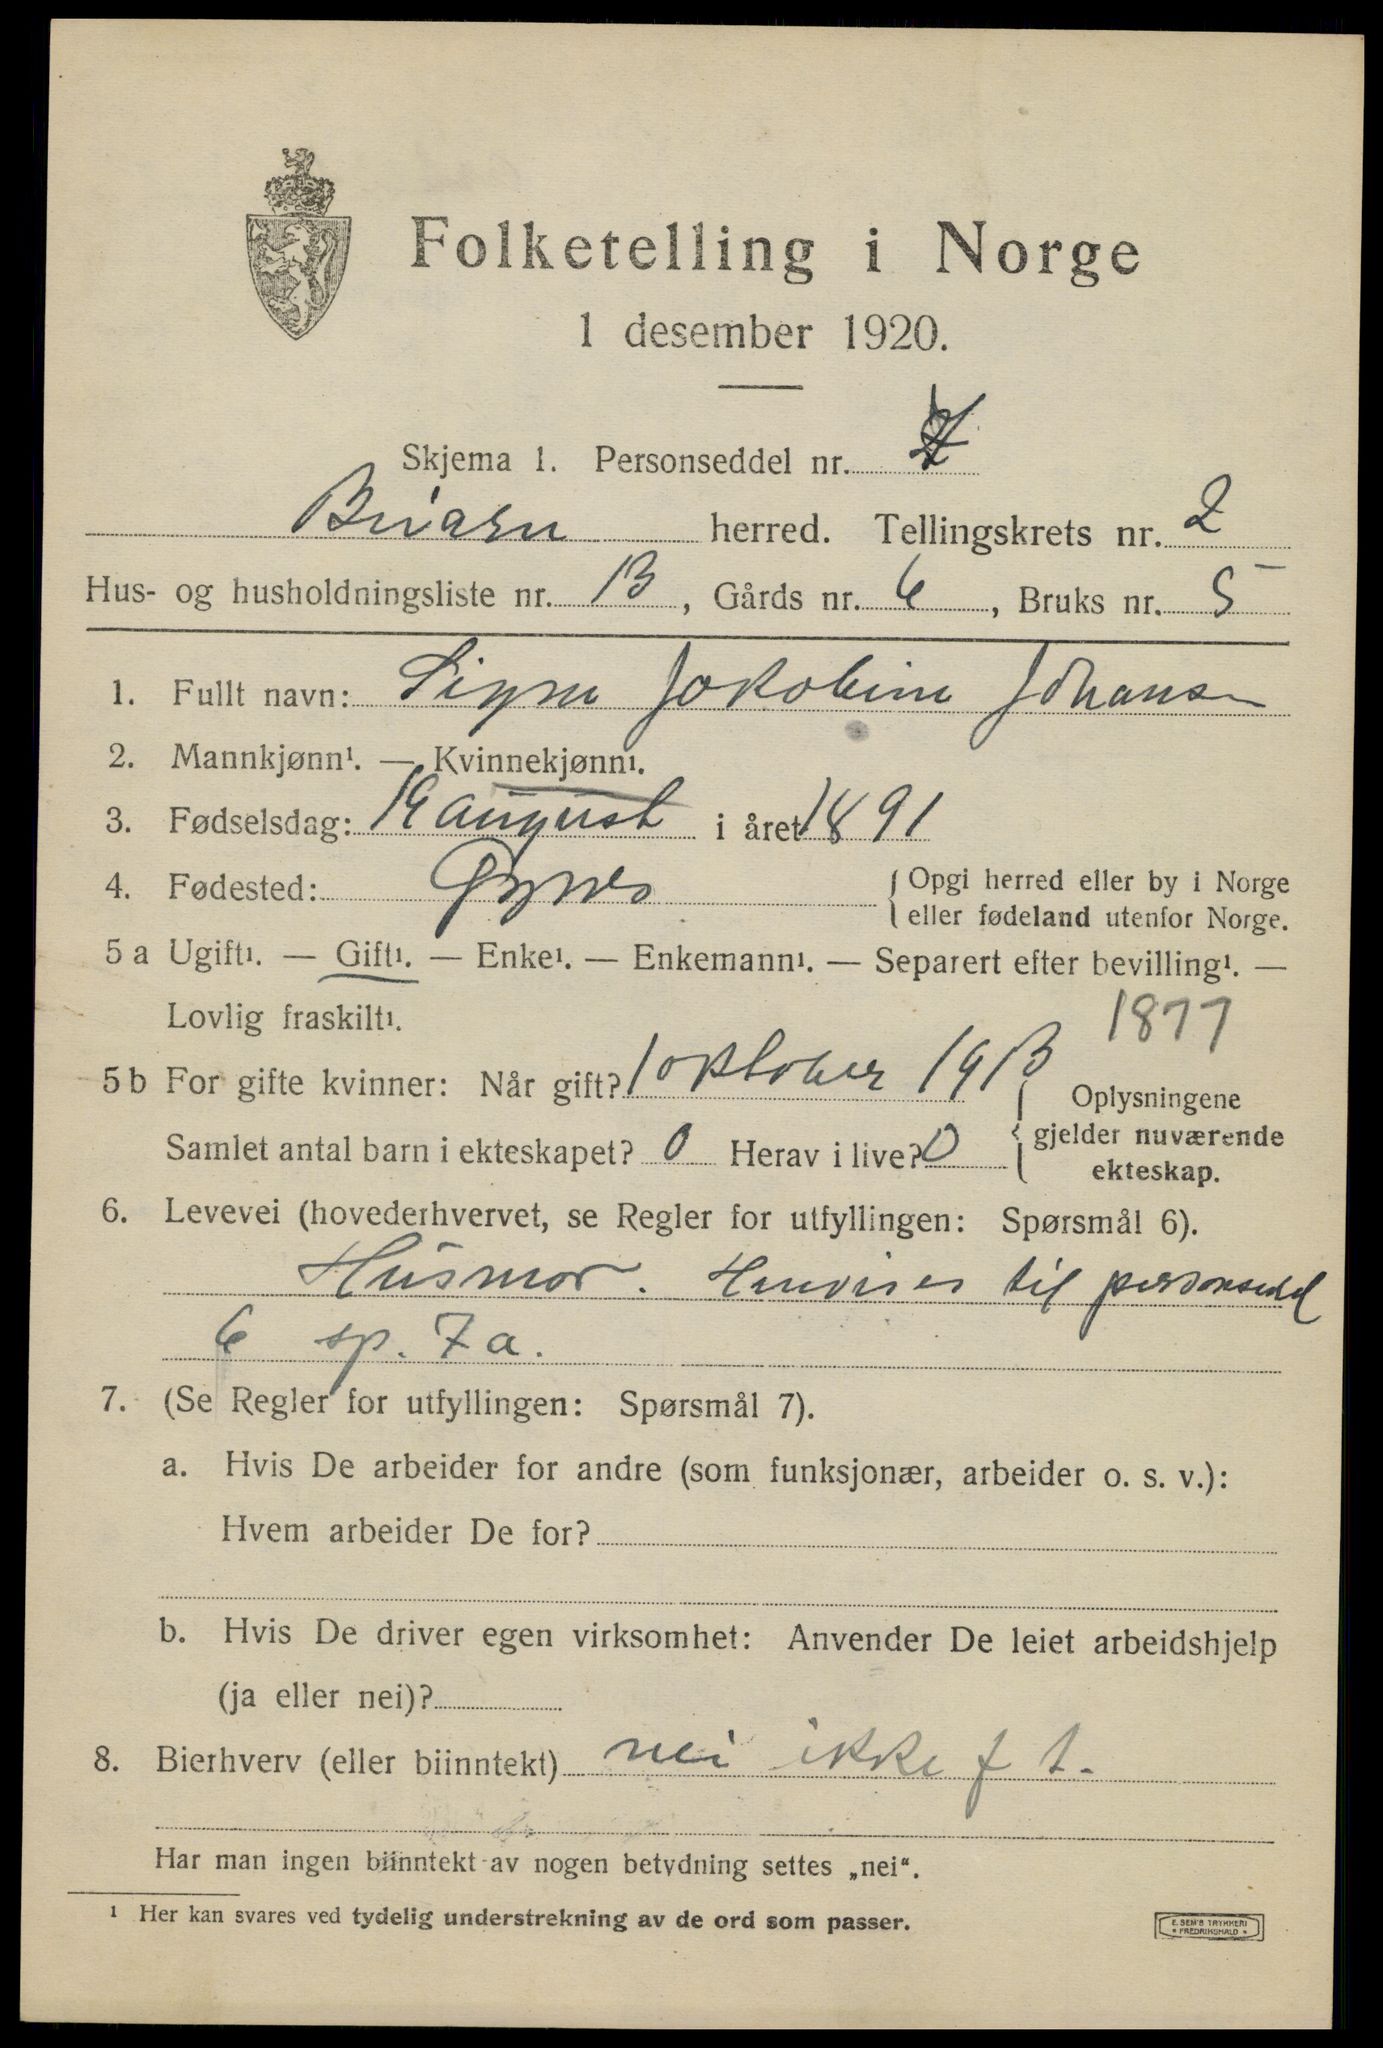 Folketelling i Norge
1 desember 1920.
Skjema 1. Personseddel nr.
herred. Tellingskrets nr. 2
Hus- og husholdningsliste nr. 13, Gårds nr. 6, Bruks nr. 5
1. Fullt navn: Signe Jakobine Johansen
2. Mannkjønn¹. — Kvinnekjønn¹.
3. Fødselsdag: 19 august i året 1891
4. Fødested: { Opgi herred eller by i Norge
eller fødeland utenfor Norge.
5 a Ugift¹. — Gift¹. — Enke¹. — Enkemann¹. — Separert efter bevilling¹. —
Lovlig fraskilt¹.
1877
5 b For gifte kvinner: Når gift? 1 oktober 1913 { Oplysningene
Samlet antal barn i ekteskapet? 0 Herav i live? 0 gjelder nuværende
ekteskap.
6. Levevei (hovederhvervet, se Regler for utfyllingen: Spørsmål 6).
Husmor. Henvises til personsedd
6 sp. 7a.
7. (Se Regler for utfyllingen: Spørsmål 7).
a. Hvis De arbeider for andre (som funksjonær, arbeider o. s. v.):
Hvem arbeider De for?
b. Hvis De driver egen virksomhet: Anvender De leiet arbeidshjelp
(ja eller nei)?
8. Bierhverv (eller biinntekt) nei ikke f t.
Har man ingen biinntekt av nogen betydning settes „nei“.
¹ Her kan svares ved tydelig understrekning av de ord som passer.
E. SEM'S TRYKKERI
* FREDRIKSHALD *